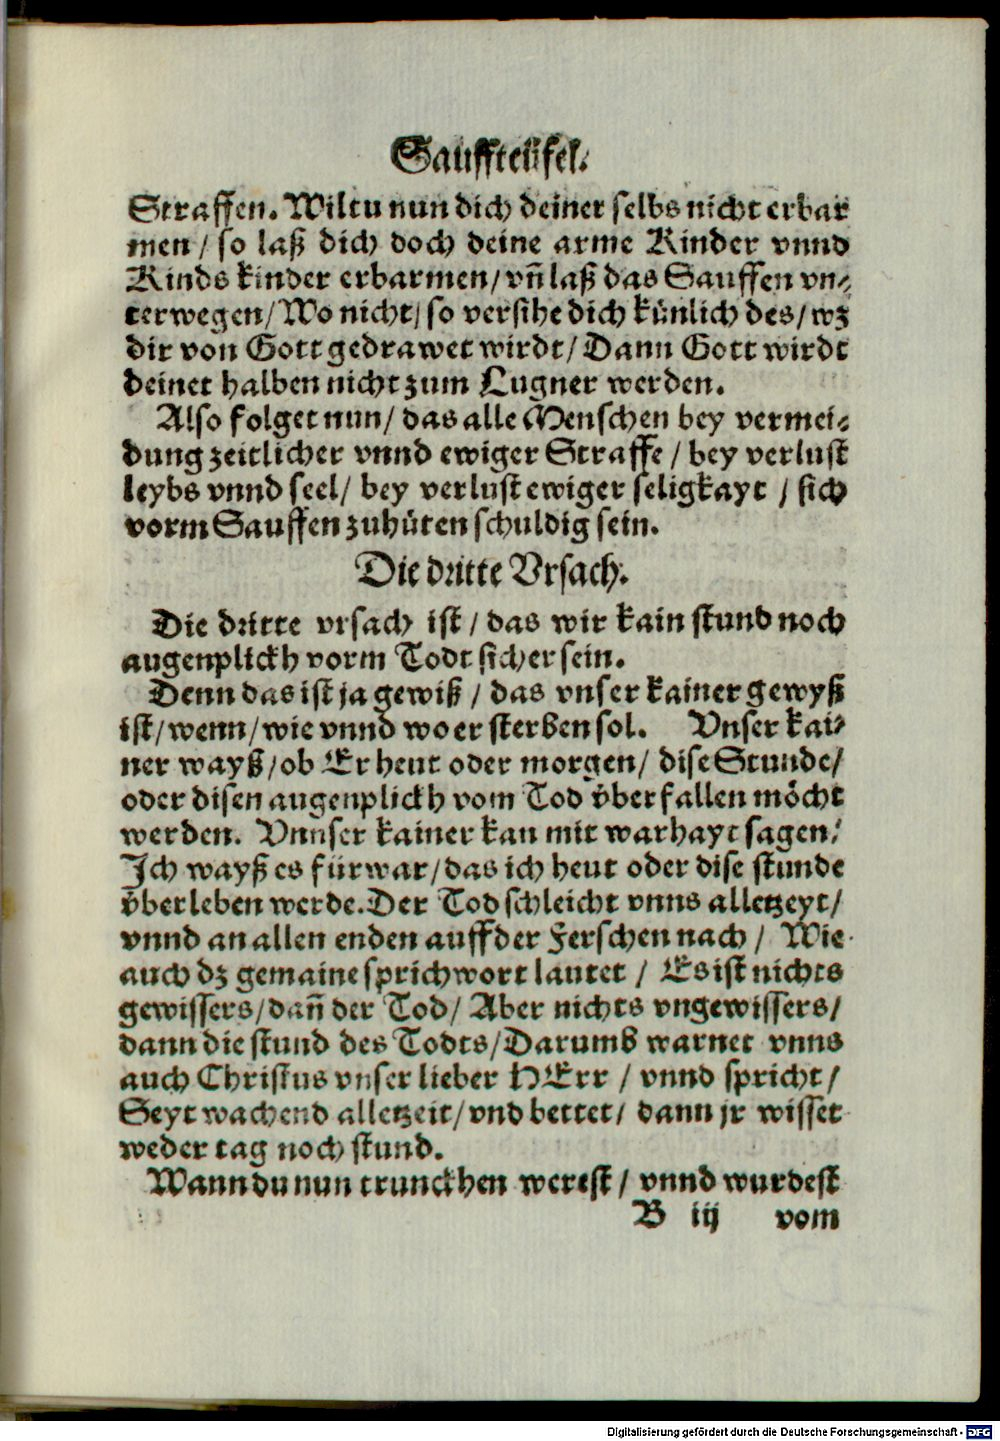 Sauffteüfel.
Straffen. Wiltu nun dich deiner selbs nicht erbar
men / so laß dich doch deine arme Kinder vnnd
Kinds kinder erbarmen / vn̄ laß das Sauffen vn⸗
terwegen / Wo nicht / so versihe dich künlich des / wz
dir von Gott gedrawet wirdt / Dann Gott wirdt
deinet halben nicht zum Lugner werden.
Also folget nun / das alle Menschen bey vermei⸗
dung zeitlicher vnnd ewiger Straffe / bey verlust
leybs vnnd seel / bey verlust ewiger seligkayt / sich
vorm Sauffen zuhüten schuldig sein.
Die dritte Vrsach.
Die dritte vrsach ist / das wir kain stund noch
augenplickh vorm Todt sicher sein.
Denn das ist ja gewiß / das vnser kainer gewyß
ist / wenn / wie vnnd wo er sterben sol. Vnser kai⸗
ner wayß / ob Er heut oder morgen / dise Stunde /
oder disen augenplickh vom Tod vͤberfallen moͤcht
werden. Vnnser kainer kan mit warhayt sagen /
Ich wayß es fürwar / das ich heut oder dise stunde
vͤberleben werde. Der Tod schleicht vnns alletzeyt /
vnnd an allen enden auff der Ferschen nach / Wie
auch dz gemaine sprichwort lautet / Es ist nichts
gewissers / dan̄ der Tod / Aber nichts vngewissers /
dann die stund des Todts / Darumb warnet vnns
auch Christus vnser lieber HErr / vnnd spricht /
Seyt wachend alletzeit / vnd bettet / dann jr wisset
weder tag noch stund.
Wann du nun trunckhen werest / vnnd wurdest
B iij vom
Digitalisierung gefördert durch die Deutsche Forschungsgemeinschaft - DFG